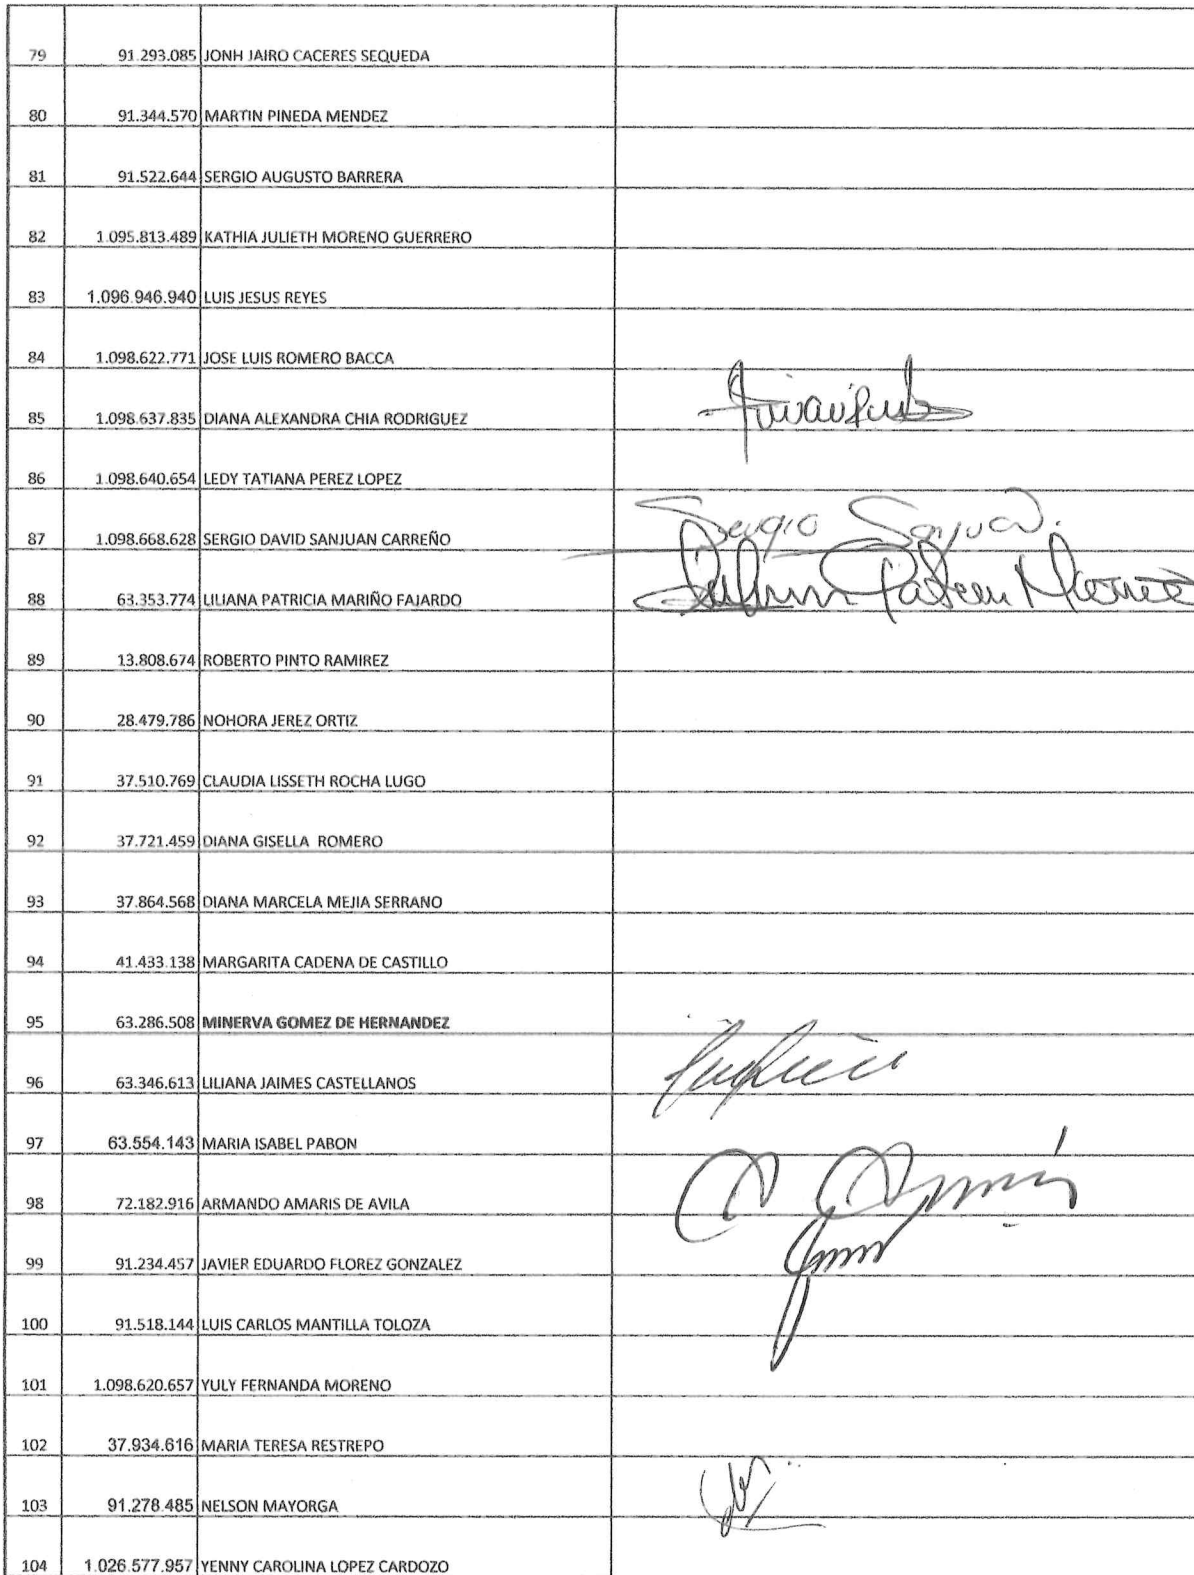 79 91.293.085 JONH JAIRO CACERES SEQUEDA
80 91.344.570 MARTIN PINEDA MENDEZ
81 91.522.644 SERGIO AUGUSTO BARRERA
82 1.095.813.489 KATHIA JULIETH MORENO GUERRERO
83 1.096.946.940 LUIS JESUS REYES
84 1.098.622.771 JOSE LUIS ROMERO BACCA
85 1.098.637.835 DIANA ALEXANDRA CHIA RODRIGUEZ
86 1.098.640.654 LEDY TATIANA PEREZ LOPEZ
87 1.098.668.628 SERGIO DAVID SANJUAN CARREÑO Sergio Sanjuan.
88 63.353.774 LILIANA PATRICIA MARIÑO FAJARDO
89 13.808.674 ROBERTO PINTO RAMIREZ
90 28.479.786 NOHORA JEREZ ORTIZ
91 37.510.769 CLAUDIA LISSETH ROCHA LUGO
92 37.721.459 DIANA GISELLA ROMERO
93 37.864.568 DIANA MARCELA MEJIA SERRANO
94 41.433.138 MARGARITA CADENA DE CASTILLO
95 63.286.508 MINERVA GOMEZ DE HERNANDEZ
96 63.346.613 LILIANA JAIMES CASTELLANOS
97 63.554.143 MARIA ISABEL PABON
98 72.182.916 ARMANDO AMARIS DE AVILA
99 91.234.457 JAVIER EDUARDO FLOREZ GONZALEZ
100 91.518.144 LUIS CARLOS MANTILLA TOLOZA
101 1.098.620.657 YULY FERNANDA MORENO
102 37.934.616 MARIA TERESA RESTREPO
103 91.278.485 NELSON MAYORGA
104 1.026.577.957 YENNY CAROLINA LOPEZ CARDOZO